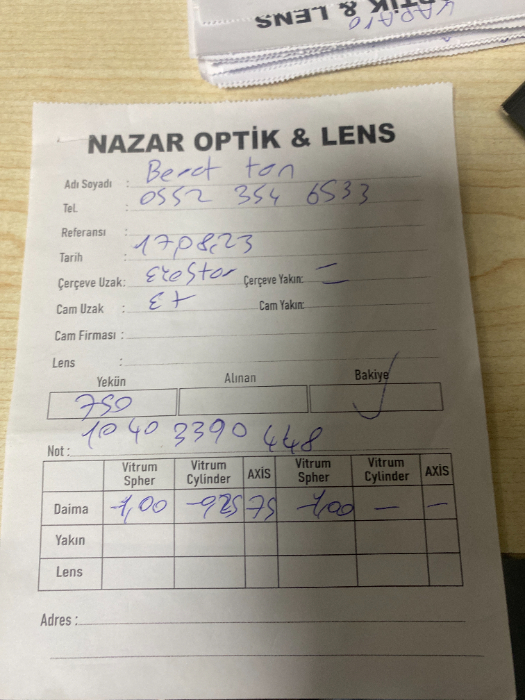 TİK & LENS
NAZAR OPTİK & LENS
Adı Soyadı : Berct ton
Tel. : 0552 354 6533
Referansı :
Tarih : 17.08.23
Çerçeve Uzak: Çerçeve Yakın: =
Cam Uzak : Cam Yakın:
Cam Firması :
Lens :
Yekün Alınan Bakiye
750
Not : 1040 3390 448
Vitrum Spher Vitrum Cylinder AXİS Vitrum Spher Vitrum Cylinder AXİS
Daima -1,00 -0,25 75 -1,00 — —
Yakın
Lens
Adres :